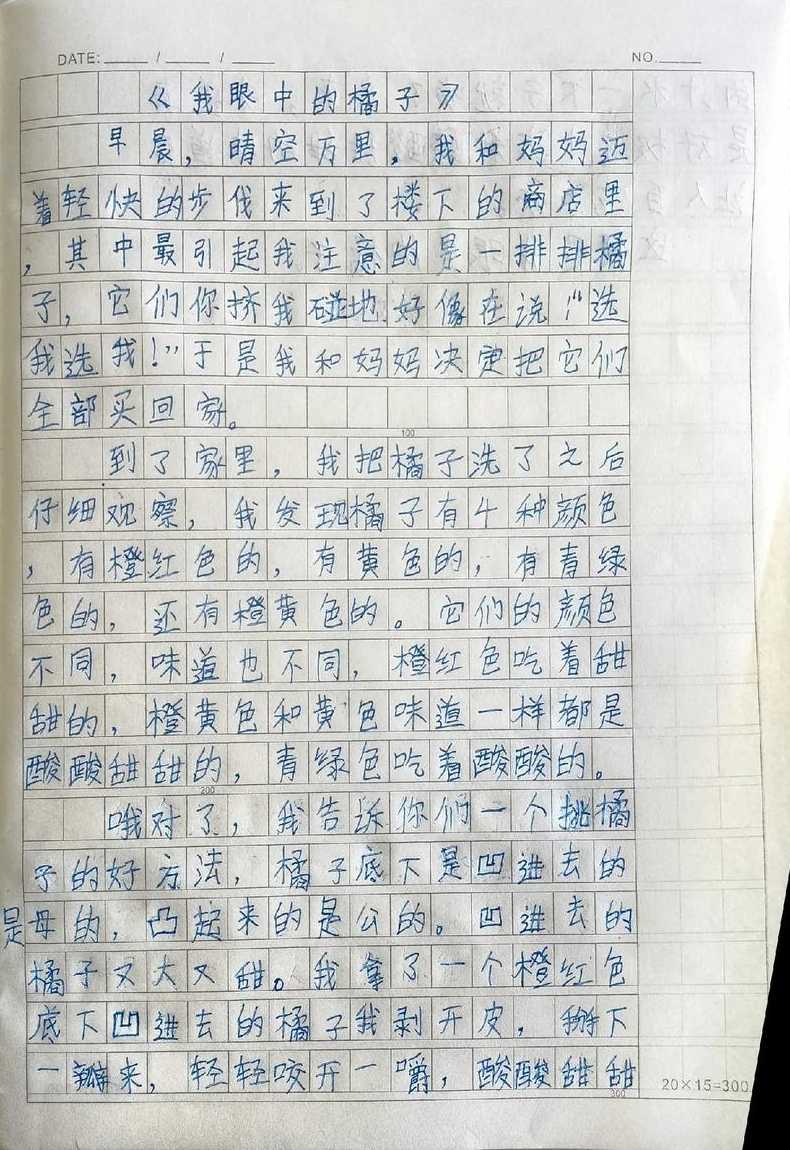 DATE: / / NO.
《我眼中的橘子》
早晨，晴空万里，我和妈妈迈
着轻快的步伐来到了楼下的商店里
，其中最引起我注意的是一排排橘
子，它们你挤我碰地好像在说“选
我选我！”于是我和妈妈决定把它们
全部买回家。
100
到了家里，我把橘子洗了之后
仔细观察，我发现橘子有4种颜色
，有橙红色的，有黄色的，有青绿
色的，还有橙黄色的。它们的颜色
不同，味道也不同，橙红色吃着甜
甜的，橙黄色和黄色味道一样都是
酸酸甜甜的，青绿色吃着酸酸的。
200
哦对了，我告诉你们一个挑橘
子的好方法，橘子底下是凹进去的
是母的，凸起来的是公的。凹进去的
橘子又大又甜。我拿了一个橙红色
底下凹进去的橘子我剥开皮，掰下
一瓣来，轻轻咬开一嚼，酸酸甜甜
300
20×15=300